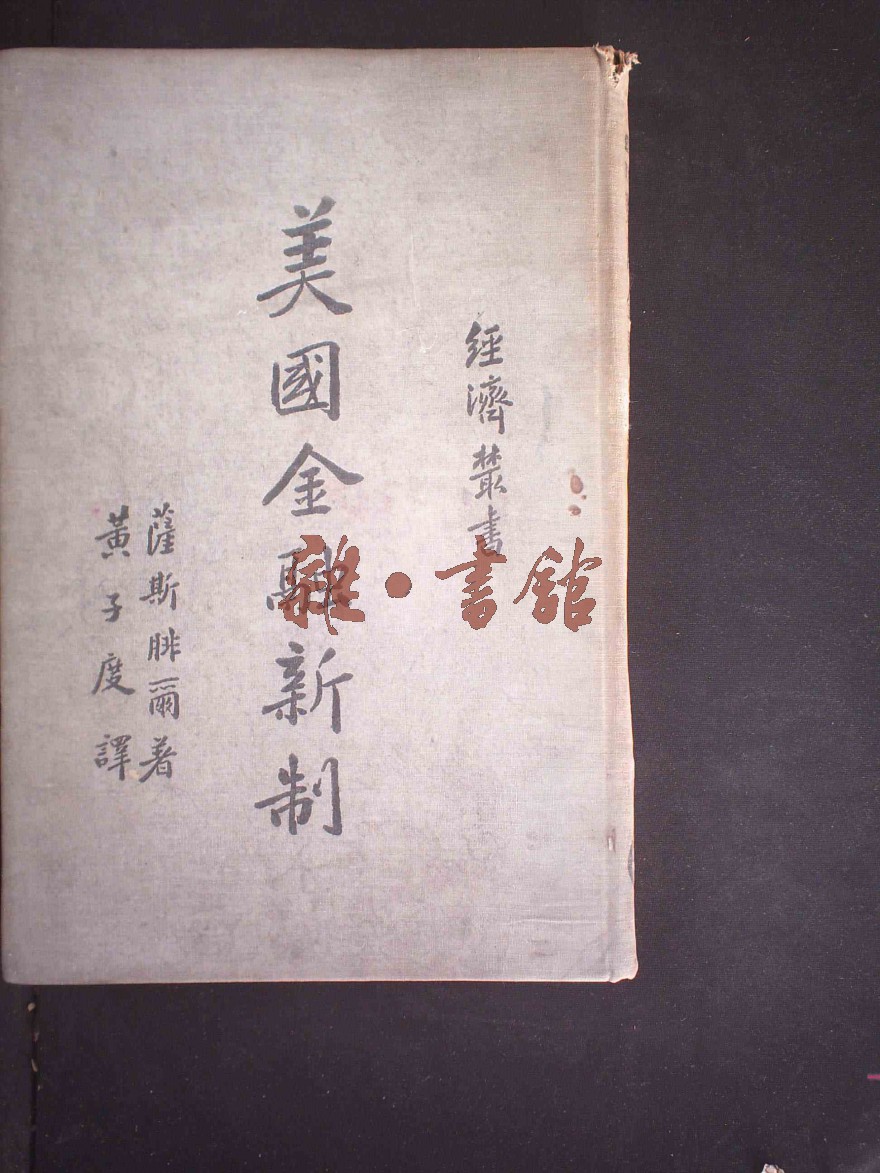 經濟叢書
美國金融新制
薩斯腓爾著
黃子度譯
雜·書館